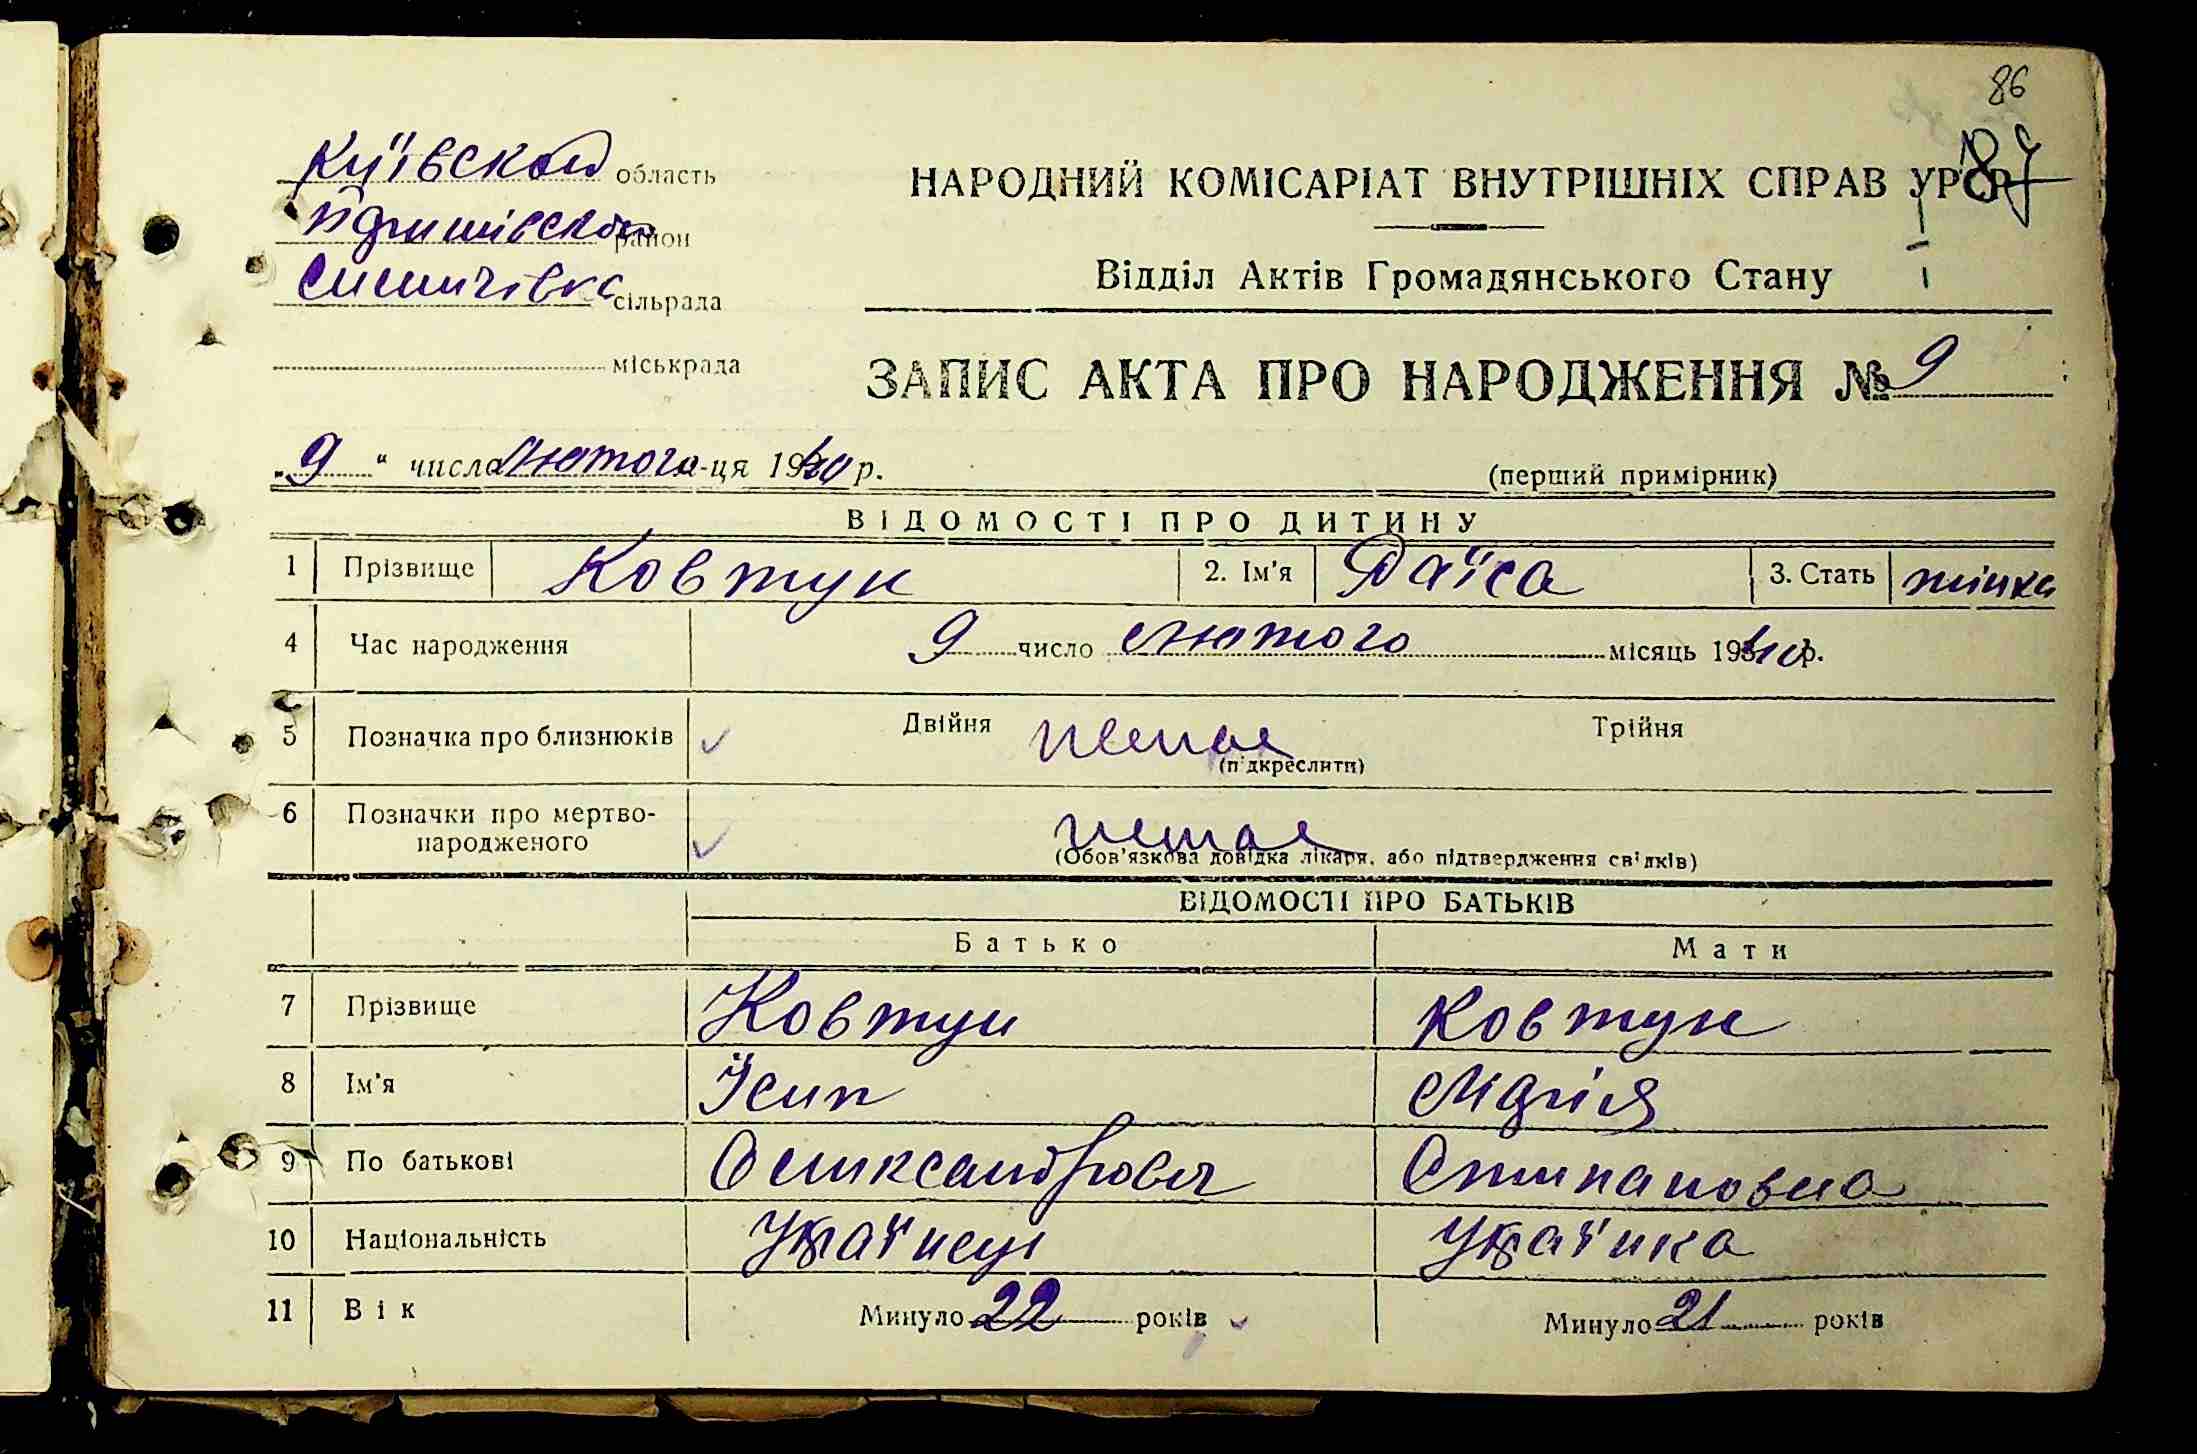 86
87
Київської область
район
сільрада
міськрада
НАРОДНИЙ КОМІСАРІАТ ВНУТРІШНІХ СПРАВ УРСР
Відділ Актів Громадянського Стану
ЗАПИС АКТА ПРО НАРОДЖЕННЯ № 9
„9“ числа лютого м-ця 1940 р.
(перший примірник)
ВІДОМОСТІ ПРО ДИТИНУ
1 Прізвище Ковтун 2. Ім'я Раїса 3. Стать жінка
4 Час народження 9 число лютого місяць 1940 р.
5 Позначка про близнюків Двійня немає Трійня
(підкреслити)
6 Позначки про мертво-
народженого немає
(Обов'язкова довідка лікаря, або підтвердження свідків)
ВІДОМОСТІ ПРО БАТЬКІВ
Батько Мати
7 Прізвище Ковтун Ковтун
8 Ім'я Йсип Марія
9 По батькові Олександрович Степановна
10 Національність Українець Українка
11 Вік Минуло 22 років Минуло 21 років